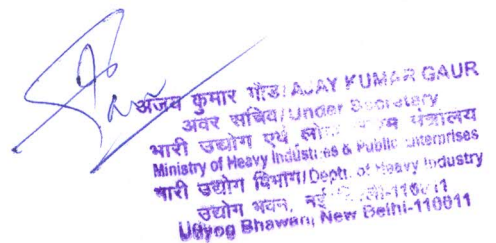 अजय कुमार गौड/AJAY KUMAR GAUR
अवर सचिव/Under Secretary
भारी उद्योग एवं लोक उद्यम मंत्रालय
Ministry of Heavy Industries & Public Enterprises
भारी उद्योग विभाग/Deptt. of Heavy Industry
उद्योग भवन, नई दिल्ली-110011
Udyog Bhawan, New Delhi-110011